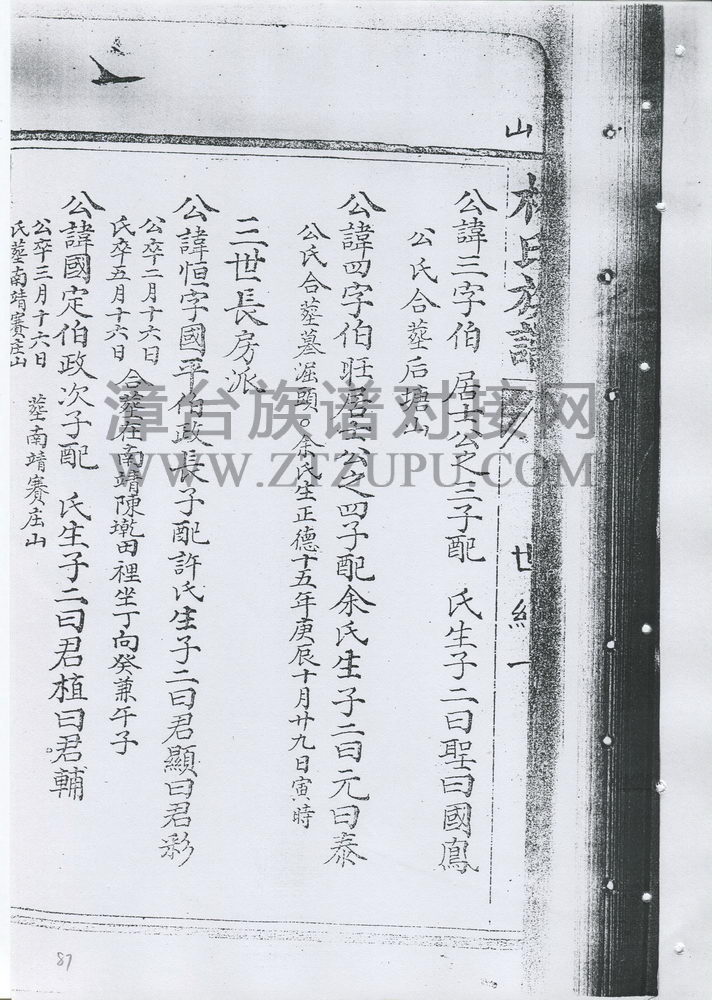 山
林氏族譜
世紀一
公諱三字伯 居士公之三子配 氏生子二曰聖曰國鳳
公氏合塟后塘山
公諱四字伯旺居士公之四子配余氏生子二曰元曰泰
公氏合塟墓溪頭。余氏生正德十五年庚辰十月廿九日寅時
三世長房派
公諱恒字國平伯政長子配許氏生子二曰君顯曰君彩
公卒二月十六日
氏卒五月十六日
合塟在南靖陳墘田裡坐丁向癸兼午子
公諱國定伯政次子配 氏生子二曰君植曰君輔
公卒三月十六日 塟南靖賽庄山
氏塟南靖賽庄山
漳台族谱对接网
WWW.ZTZUPU.COM
87